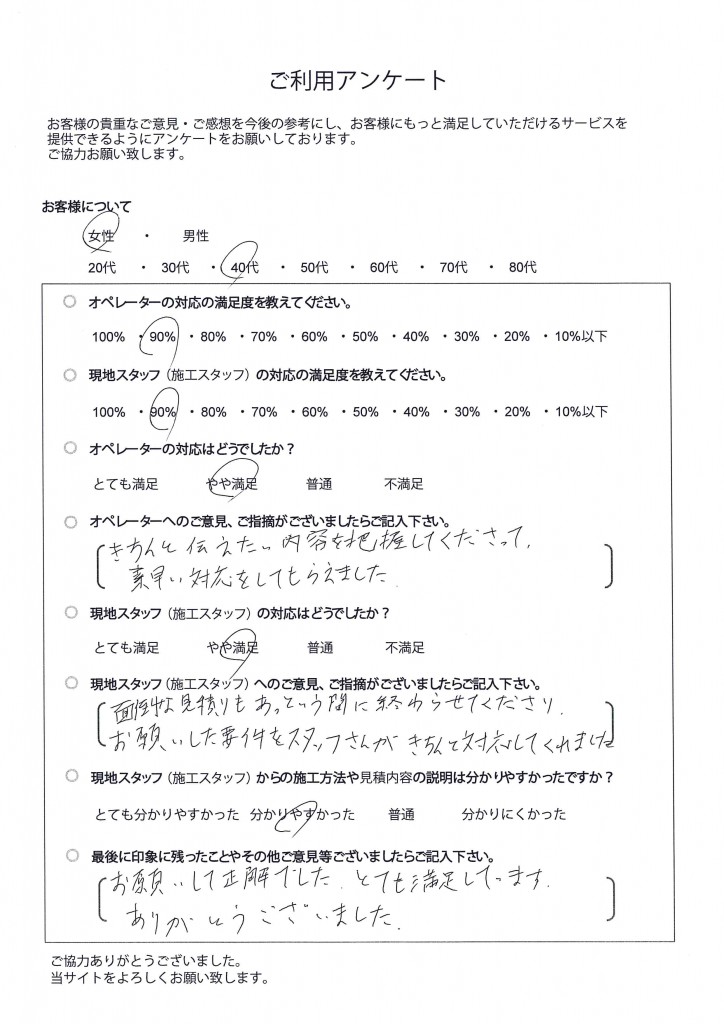 ご利用アンケート
お客様の貴重なご意見・ご感想を今後の参考にし、お客様にもっと満足していただけるサービスを
提供できるようにアンケートをお願いしております。
ご協力お願い致します。
お客様について
女性 ・ 男性
20代 ・ 30代 ・ 40代 ・ 50代 ・ 60代 ・ 70代 ・ 80代
オペレーターの対応の満足度を教えてください。
100% ・90% ・80% ・70% ・60% ・50% ・40% ・30% ・20% ・10%以下
現地スタッフ（施工スタッフ）の対応の満足度を教えてください。
100% ・90% ・80% ・70% ・60% ・50% ・40% ・30% ・20% ・10%以下
オペレーターの対応はどうでしたか？
とても満足 やや満足 普通 不満足
オペレーターへのご意見、ご指摘がございましたらご記入下さい。
きちんと伝えたい内容を把握してくださって、
素早い対応をしてもらえました.
現地スタッフ（施工スタッフ）の対応はどうでしたか？
とても満足 やや満足 普通 不満足
現地スタッフ（施工スタッフ）へのご意見、ご指摘がございましたらご記入下さい。
面倒な見積りもあっという間に終わらせてくださり.
お願いした要件をスタッフさんがきちんと対応してくれました
現地スタッフ（施工スタッフ）からの施工方法や見積内容の説明は分かりやすかったですか？
とても分かりやすかった 分かりやすかった 普通 分かりにくかった
最後に印象に残ったことやその他ご意見等ございましたらご記入下さい。
お願いして正解でした. とても満足してます.
ありがとうございました.
ご協力ありがとうございました。
当サイトをよろしくお願い致します。